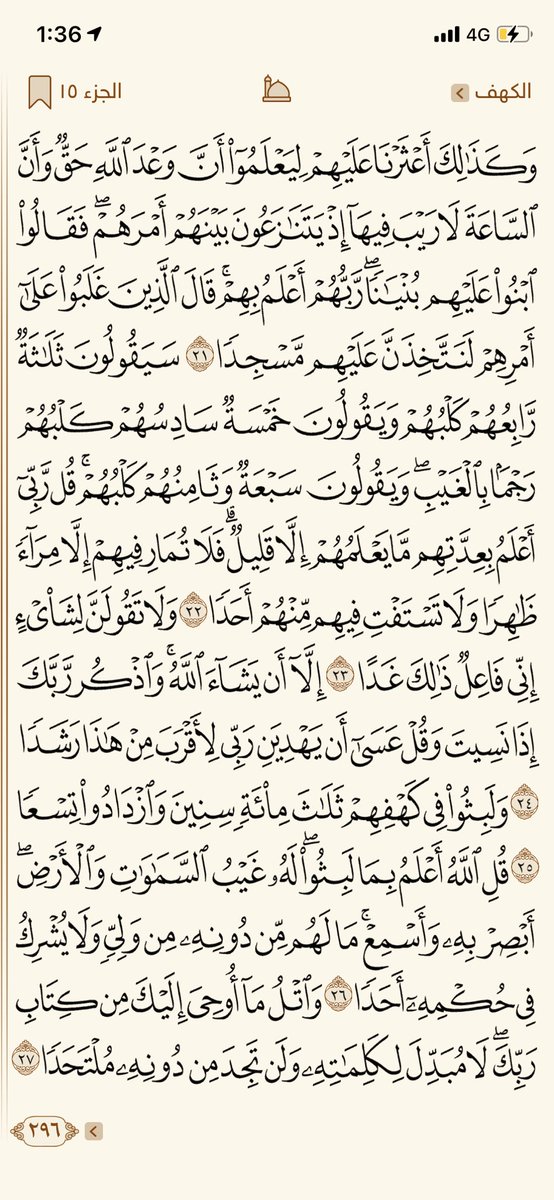 1:36
4G
الكهف
الجزء ١٥
وَكَذَٰلِكَ أَعْثَرْنَا عَلَيْهِمْ لِيَعْلَمُوٓا۟ أَنَّ وَعْدَ ٱللَّهِ حَقٌّ وَأَنَّ
ٱلسَّاعَةَ لَا رَيْبَ فِيهَآ إِذْ يَتَنَٰزَعُونَ بَيْنَهُمْ أَمْرَهُمْ ۖ فَقَالُوا۟
ٱبْنُوا۟ عَلَيْهِم بُنْيَٰنًا ۖ رَّبُّهُمْ أَعْلَمُ بِهِمْ ۚ قَالَ ٱلَّذِينَ غَلَبُوا۟ عَلَىٰٓ
أَمْرِهِمْ لَنَتَّخِذَنَّ عَلَيْهِم مَّسْجِدًا ٢١ سَيَقُولُونَ ثَلَٰثَةٌ
رَّابِعُهُمْ كَلْبُهُمْ وَيَقُولُونَ خَمْسَةٌ سَادِسُهُمْ كَلْبُهُمْ
رَجْمًۢا بِٱلْغَيْبِ ۖ وَيَقُولُونَ سَبْعَةٌ وَثَامِنُهُمْ كَلْبُهُمْ ۚ قُل رَّبِّىٓ
أَعْلَمُ بِعِدَّتِهِم مَّا يَعْلَمُهُمْ إِلَّا قَلِيلٌ ۗ فَلَا تُمَارِ فِيهِمْ إِلَّا مِرَآءً
ظَٰهِرًا وَلَا تَسْتَفْتِ فِيهِم مِّنْهُمْ أَحَدًا ٢٢ وَلَا تَقُولَنَّ لِشَا۟ىْءٍ
إِنِّى فَاعِلٌ ذَٰلِكَ غَدًا ٢٣ إِلَّآ أَن يَشَآءَ ٱللَّهُ ۚ وَٱذْكُر رَّبَّكَ
إِذَا نَسِيتَ وَقُلْ عَسَىٰٓ أَن يَهْدِيَنِ رَبِّى لِأَقْرَبَ مِنْ هَٰذَا رَشَدًا
٢٤ وَلَبِثُوا۟ فِى كَهْفِهِمْ ثَلَٰثَ مِا۟ئَةٍ سِنِينَ وَٱزْدَادُوا۟ تِسْعًا
٢٥ قُلِ ٱللَّهُ أَعْلَمُ بِمَا لَبِثُوا۟ ۖ لَهُۥ غَيْبُ ٱلسَّمَٰوَٰتِ وَٱلْأَرْضِ ۖ
أَبْصِرْ بِهِۦ وَأَسْمِعْ ۚ مَا لَهُم مِّن دُونِهِۦ مِن وَلِىٍّ وَلَا يُشْرِكُ
فِى حُكْمِهِۦٓ أَحَدًا ٢٦ وَٱتْلُ مَآ أُوحِىَ إِلَيْكَ مِن كِتَابِ
رَبِّكَ ۖ لَا مُبَدِّلَ لِكَلِمَٰتِهِۦ وَلَن تَجِدَ مِن دُونِهِۦ مُلْتَحَدًا ٢٧
٢٩٦